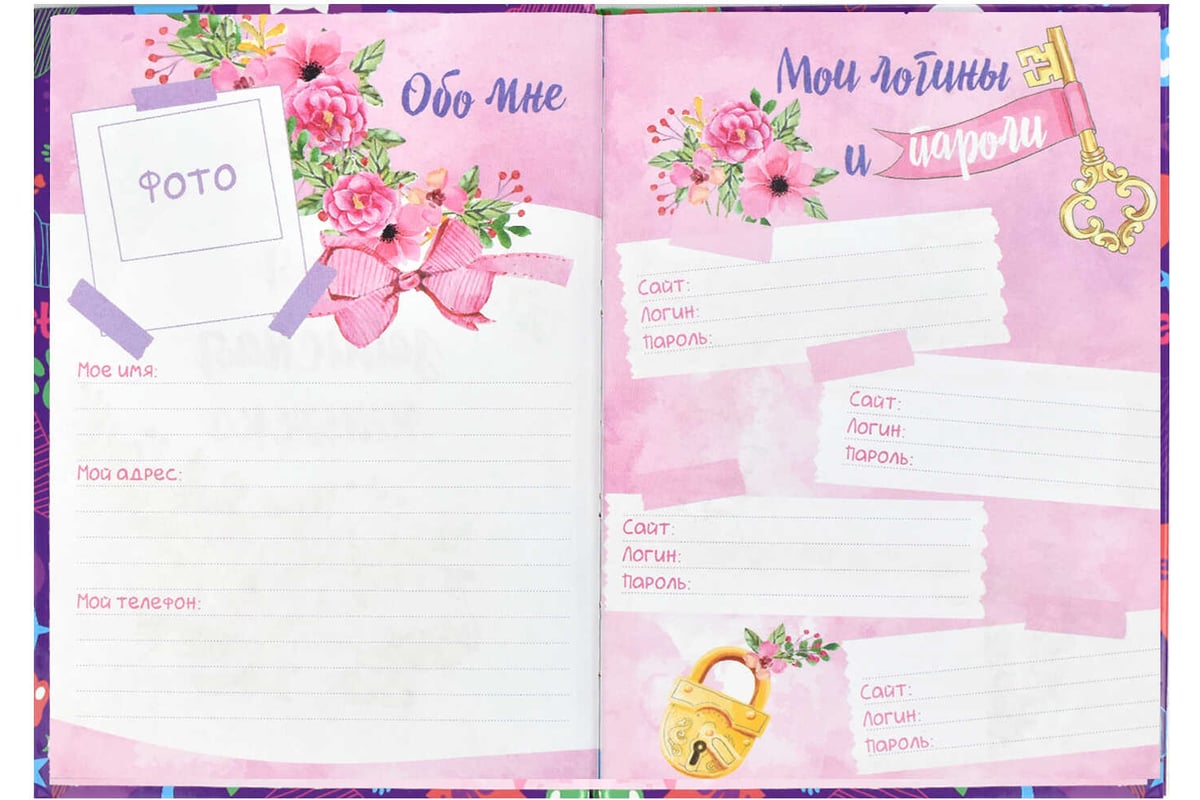 Обо мне
ФОТО
Мое имя:
Мой адрес:
Мой телефон:
Мои логины
и пароли
Сайт:
Логин:
Пароль:
Сайт:
Логин:
Пароль:
Сайт:
Логин:
Пароль:
Сайт:
Логин:
Пароль: